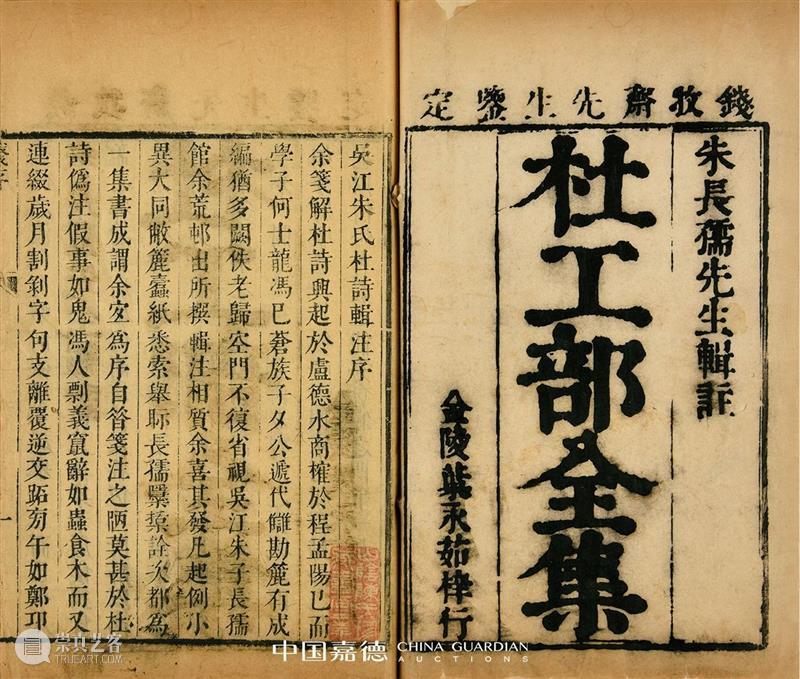 錢牧齋先生鑒定
朱長孺先生輯註
杜工部全集
金陵葉永茹梓行
吳江朱氏杜詩輯注序
余箋解杜詩興起於盧德水商榷於程孟陽已而
學子何士龍馮已蒼族子夕公遞代讎勘麄有成
編猶多闕佚老歸空門不復省視吳江朱子長孺
館余荒邨出所撰輯注相質余喜其發凡起例小
異大同敝簏蠹紙悉索舉眎長孺櫽詮次都為
一集書成謂余宜為序自昔箋注之陋莫甚於杜
詩僞注假事如鬼馮人剽義竄辭如蟲食木而又
連綴歲月割剝字句支離覆逆交跖旁午如鄭卭
一
崇真艺客
TRUEART.COM
中国嘉德 CHINA GUARDIAN
AUCTIONS